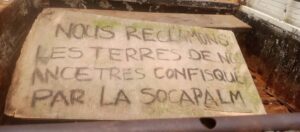 NOUS RECLAMONS
LES TERRES DE NOS
ANCETRES CONFISQUE
PAR LA SOCAPALM